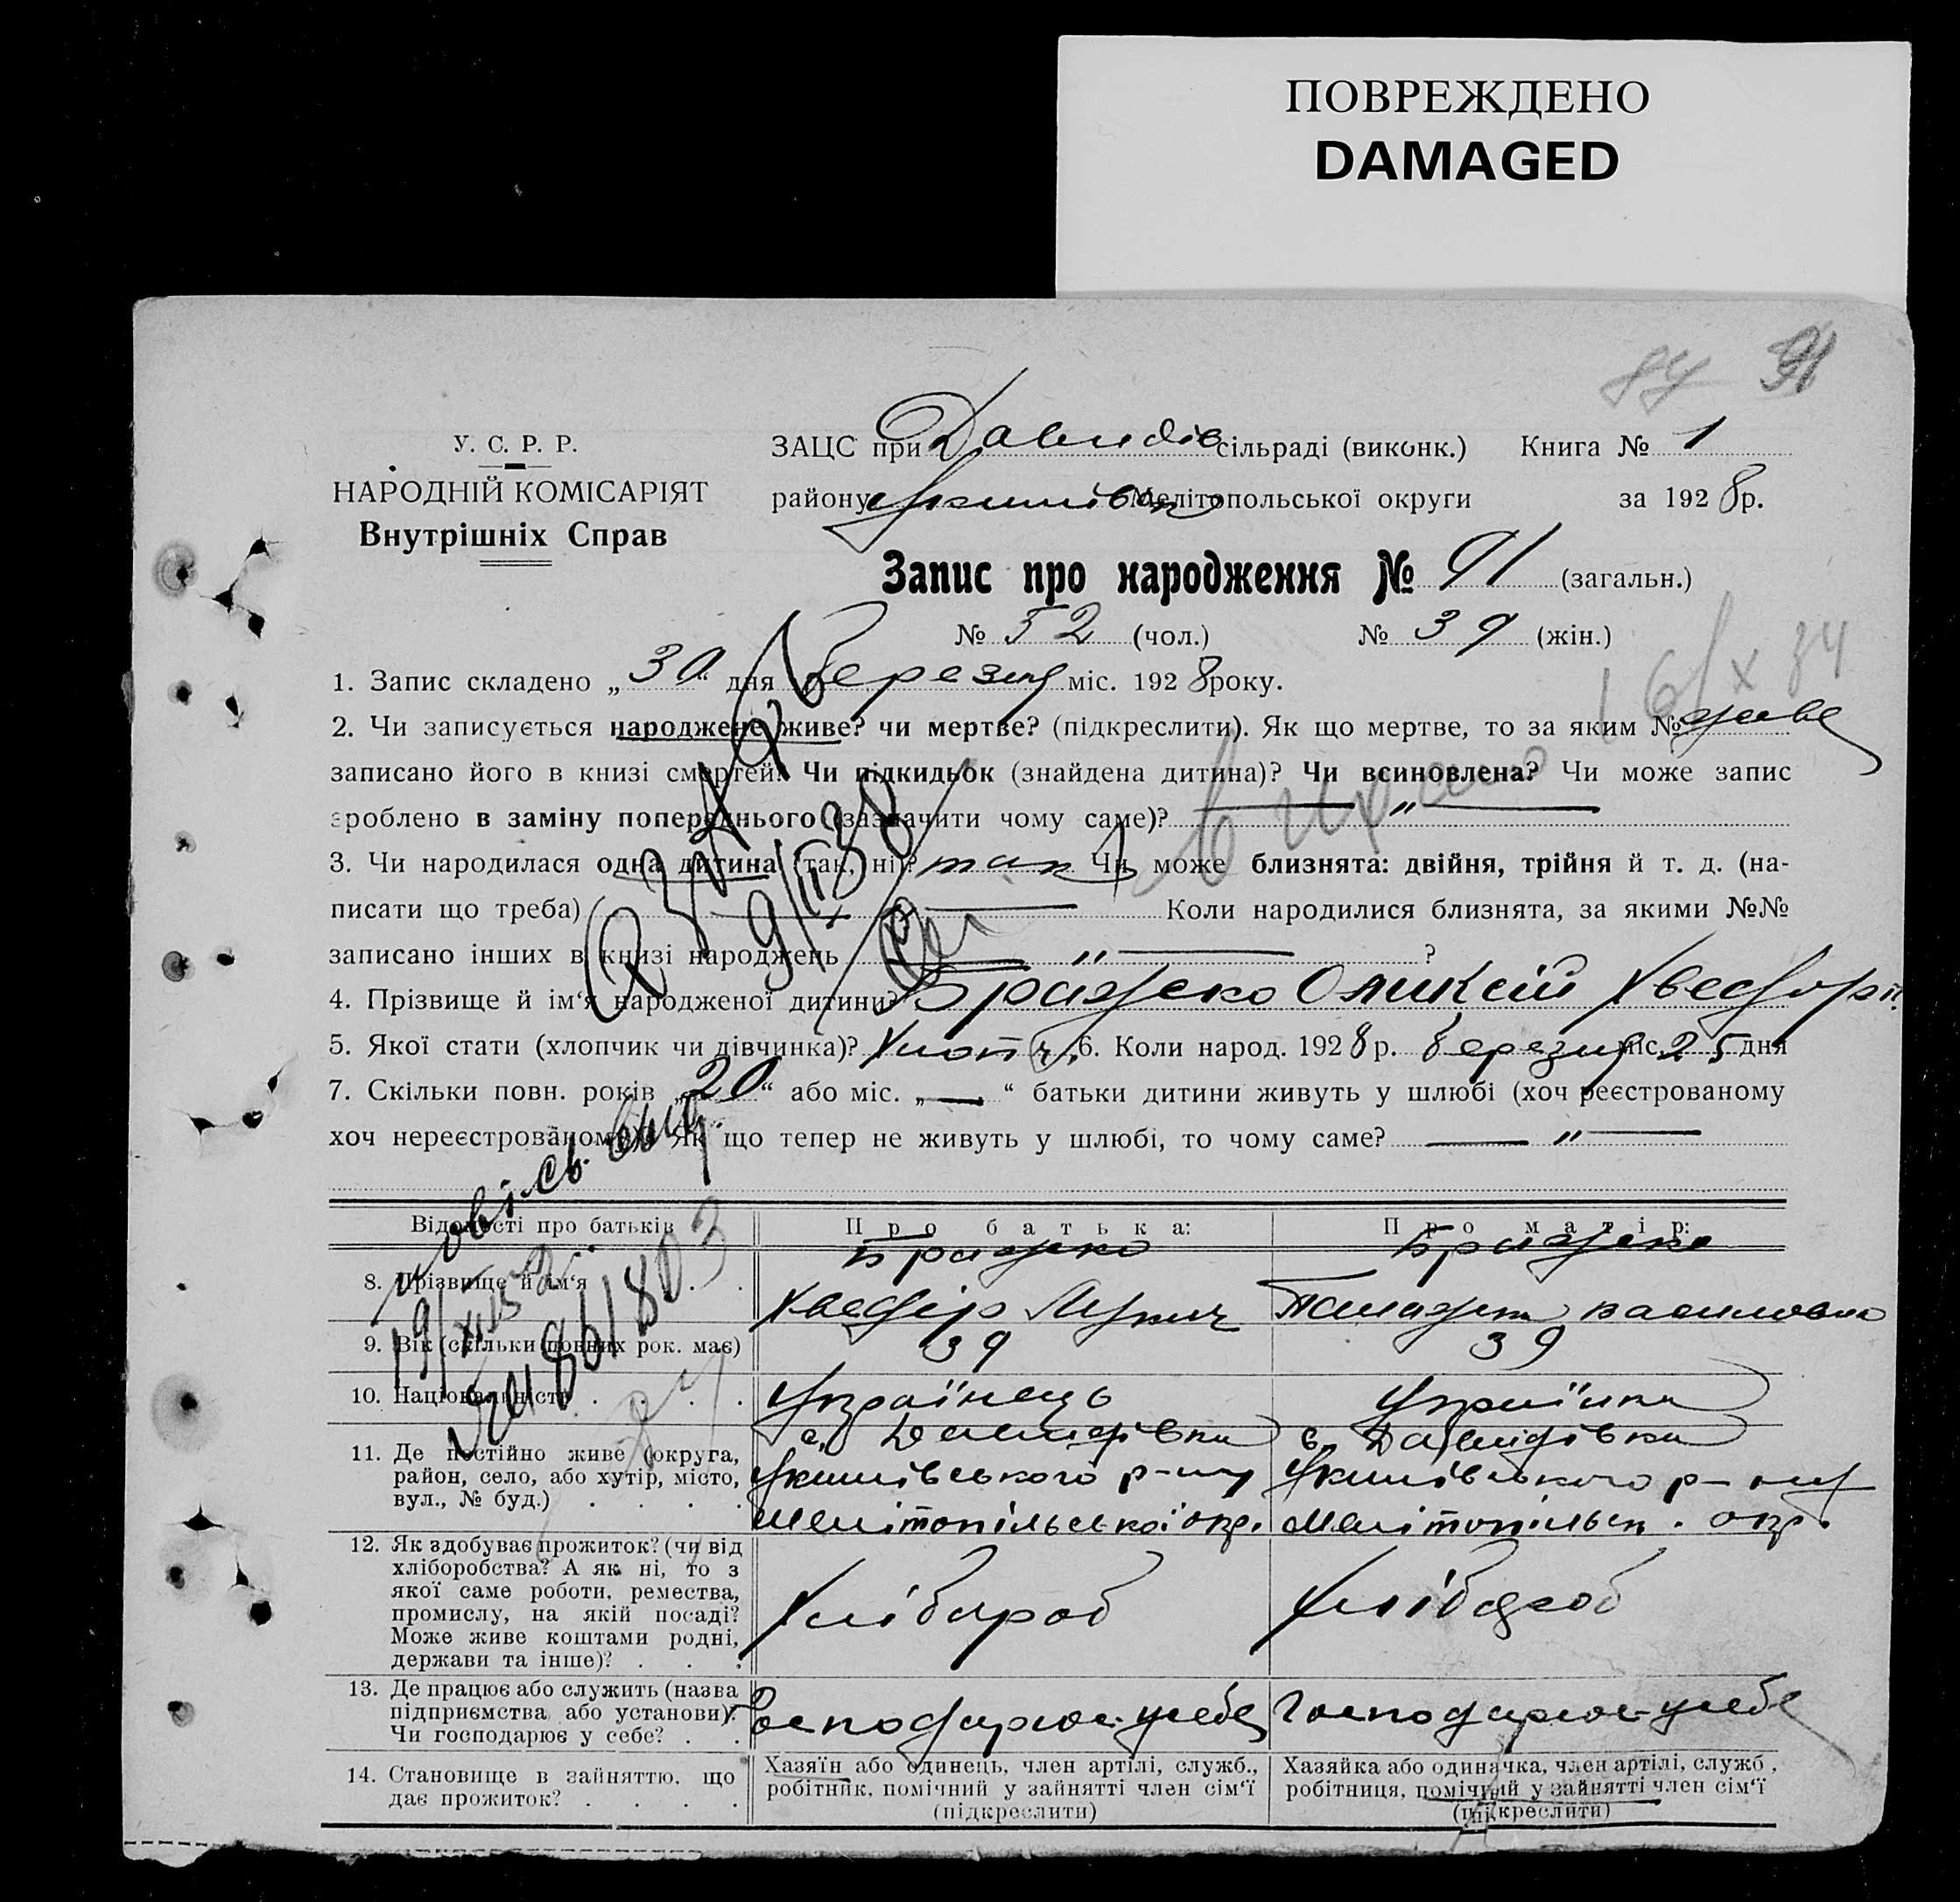 ПОВРЕЖДЕНО
DAMAGED
84 91
У. С. Р. Р.
НАРОДНІЙ КОМІСАРІЯТ
Внутрішніх Справ
ЗАЦС при Давидів сільраді (виконк.) Книга № 1
району Якимівськ Мелітопольської округи за 1928 р.
Запис про народження № 91 (загальн.)
№ 52 (чол.) № 39 (жін.)
1. Запис складено „30“ дня березня міс. 1928 року.
16/X 34
2. Чи записується народжене живе? чи мертве? (підкреслити). Як що мертве, то за яким № живе
записано його в книзі смертей? Чи підкидьок (знайдена дитина)? Чи всиновлена? Чи може запис
зроблено в заміну попереднього (зазначити чому саме)? — „ —
3. Чи народилася одна дитина (так, ні)? так Чи може близнята: двійня, трійня й т. д. (на-
писати що треба) Коли народилися близнята, за якими №№
записано інших в книзі народжень — „ — ?
4. Прізвище й ім‘я народженої дитини? Бражко Оликсій Хведорів
5. Якої стати (хлопчик чи дівчинка)? Хлопч. 6. Коли народ. 1928 р. березня міс. 25 дня
7. Скільки повн. років „20“ або міс. „—“ батьки дитини живуть у шлюбі (хоч реєстрованому
хоч нереєстрованому)? Як що тепер не живуть у шлюбі, то чому саме? — „ —
Відомості про батьків Про батька: Про матір:
8. Прізвище й ім‘я . . Бражко Хведір Бражко
9. Вік (скільки повних рок. має) 39 39
10. Національність . . . . Українець Українка
11. Де постійно живе (округа, район, село, або хутір, місто, вул., № буд.) . . . . с. Давидівка Якимівського р-ну Мелітопільської окр. с. Давидівка Якимівського р-ну Мелітопільськ. окр.
12. Як здобуває прожиток? (чи від хліборобства? А як ні, то з якої саме роботи, ремества, промислу, на якій посаді? Може живе коштами родні, держави та інше)? . . . Хлібароб Хлібароб
13. Де працює або служить (назва підприємства або установи)? Чи господарює у себе? . . Господарює у себе Господарює у себе
14. Становище в зайняттю, що дає прожиток? . . . . Хазяїн або одинець, член артілі, служб., робітник, помічний у зайнятті член сім‘ї (підкреслити) Хазяйка або одиначка, член артілі, служб, робітниця, помічний у зайнятті член сім‘ї (підкреслити)